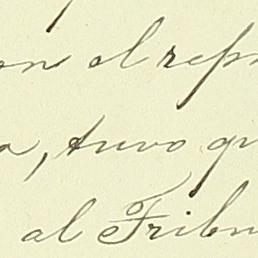 on el repr
a, tuvo qu
al Tribu